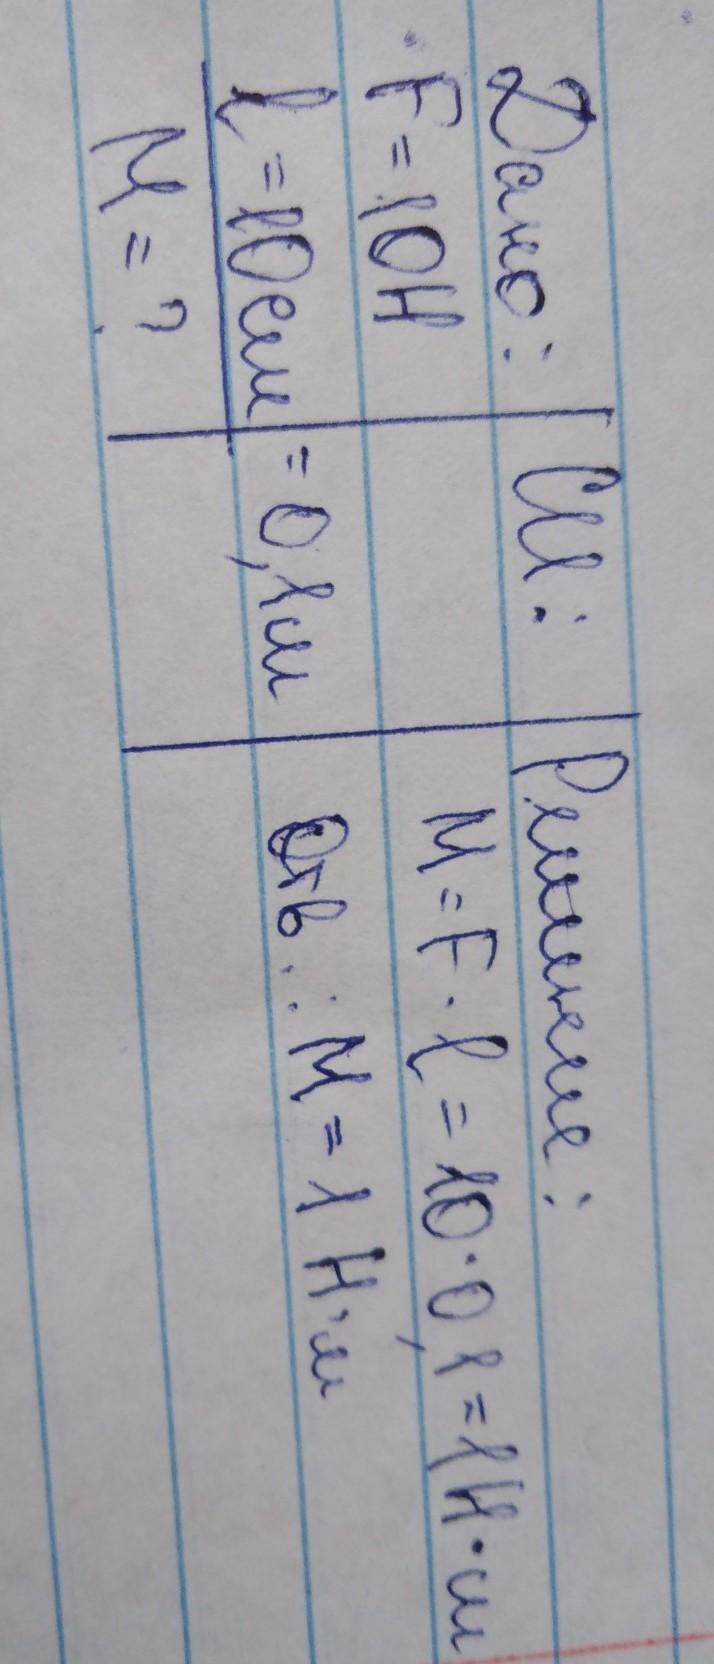 Дано:
F = 10Н
l = 10см
M = ?
СИ:
= 0,1м
Решение:
M = F · l = 10 · 0,1 = 1Н·м
Отв.: M = 1 Н·м